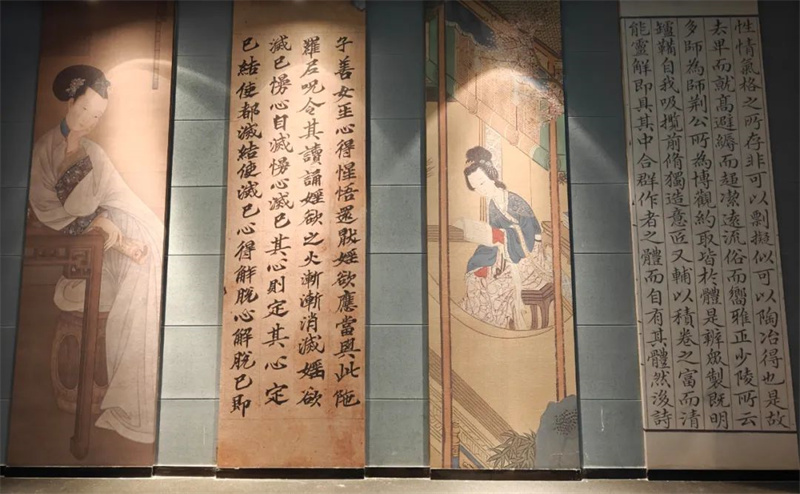 性情氣格之所存非可以剽擬似可以陶冶得也是故
去卑而就高避縟而趨潔遠流俗而嚮雅正少陵所云
多師為師荆公所為博觀約取皆於體是辨衆製既明
罏鞴自我吸攬前脩獨造意匠又輔以積卷之富而清
能靈解即具其中合群作者之體而自有其體然後詩
子善女至心得惺悟還戢婬欲應當與此陁
羅尼呪令其讀誦婬欲之火漸漸消滅婬欲
滅已慢心自滅慢心滅已其心則定其心定
已結使都滅結使滅已心得解脫心解脫已即